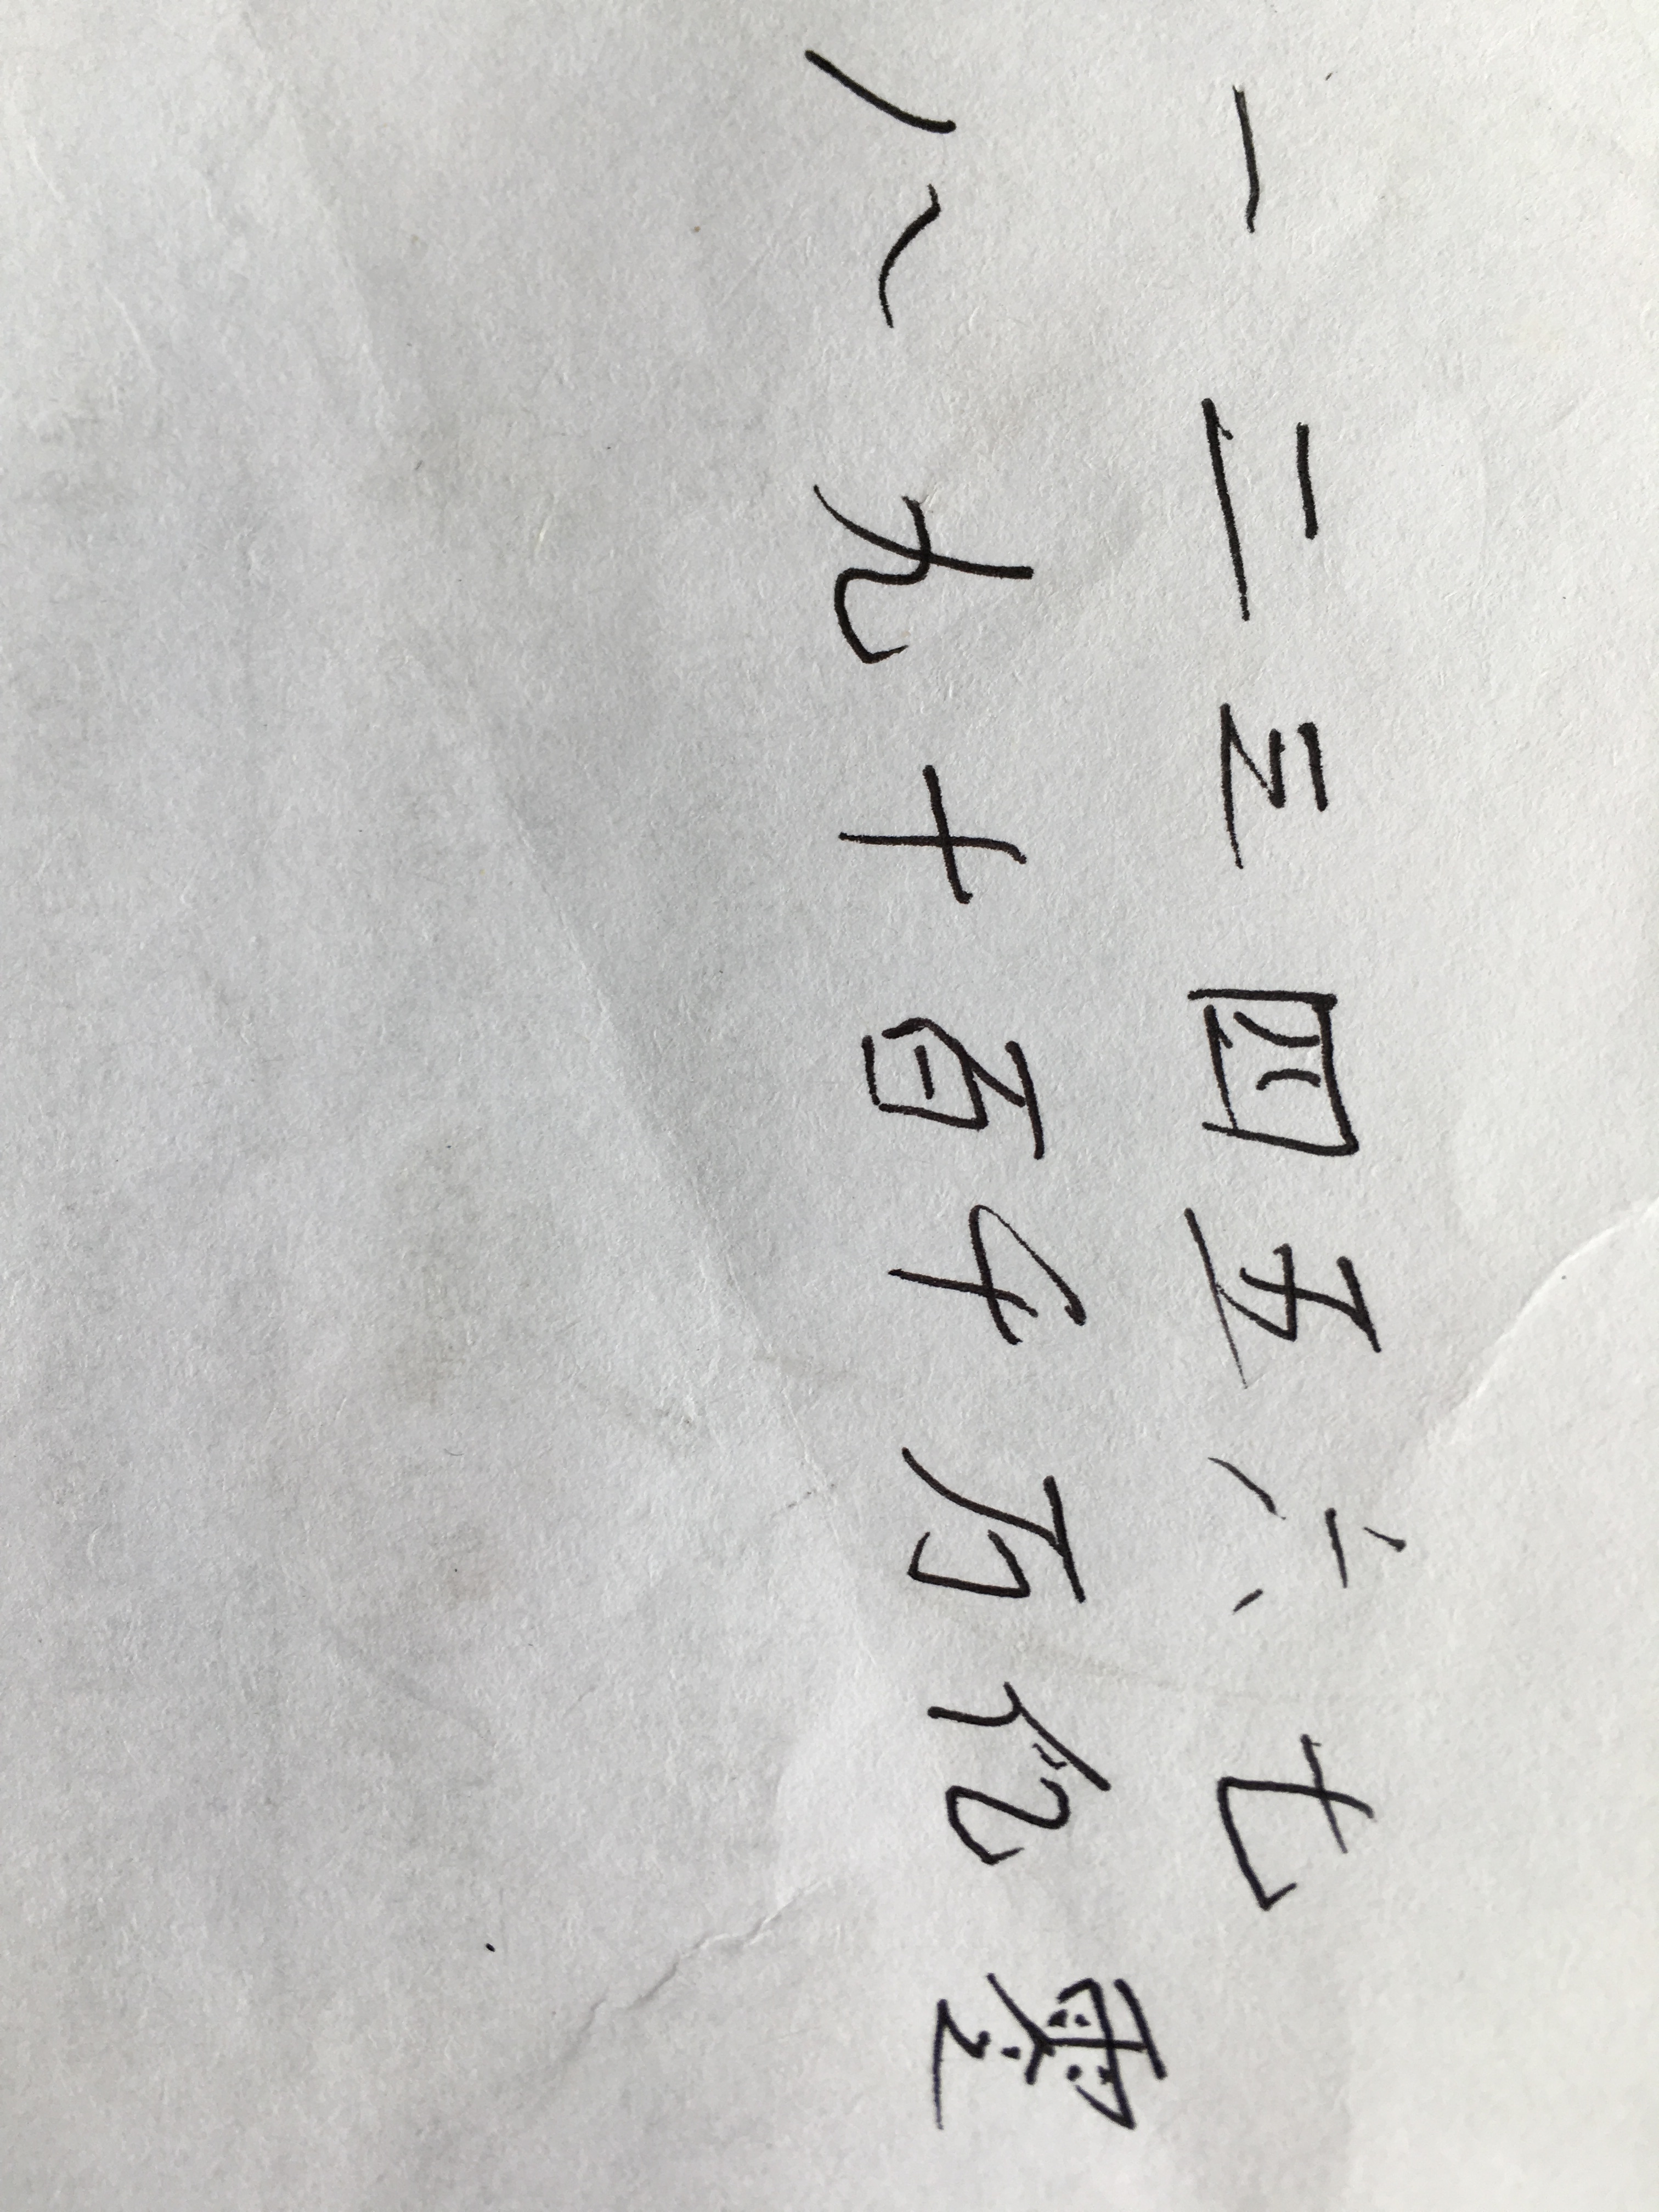 一 二 三 四 五 六 七
八 九 十 百 千 万 亿 零